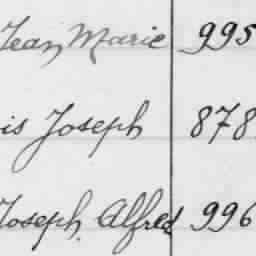 Jean Marie 995
is Joseph 878
Joseph Alfred 996